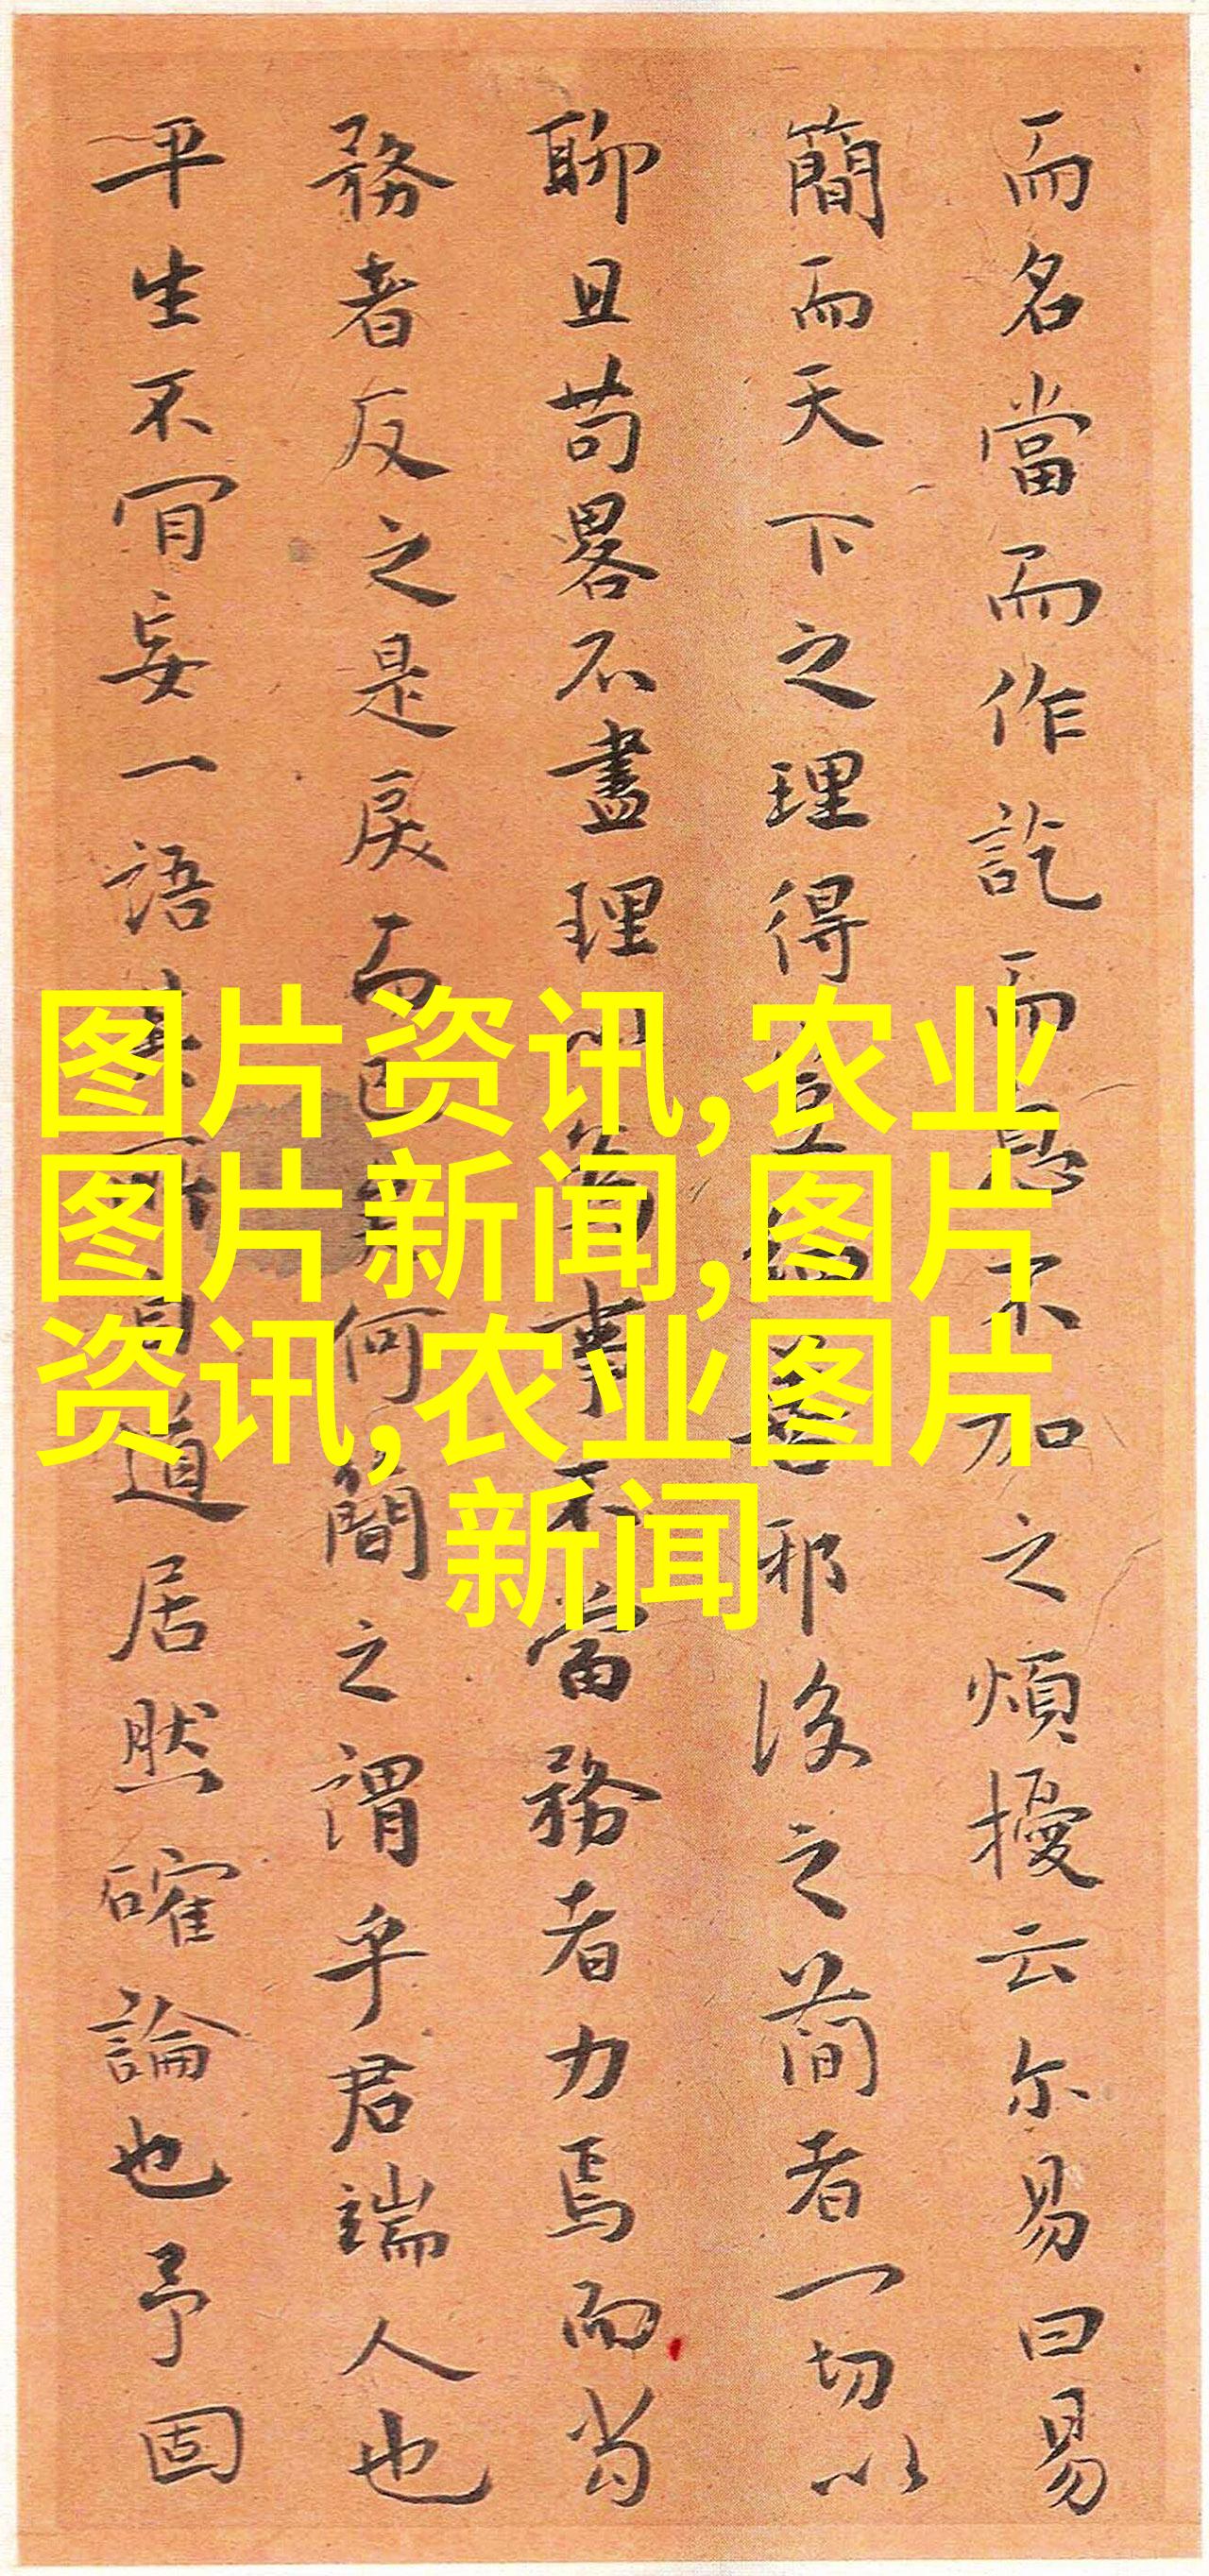 而名當而作訖而息不加之煩擾云尔易曰易
簡而天下之理得豈邪後之簡者一切以
聊且苟畧不盡理事不當務者力焉而當
務者反之是戾而已矣何簡之謂乎君端人也
平生不肯妄一語其所自道居然確論也予固
图片资讯,农业
图片新闻,图片
资讯,农业图片
新闻